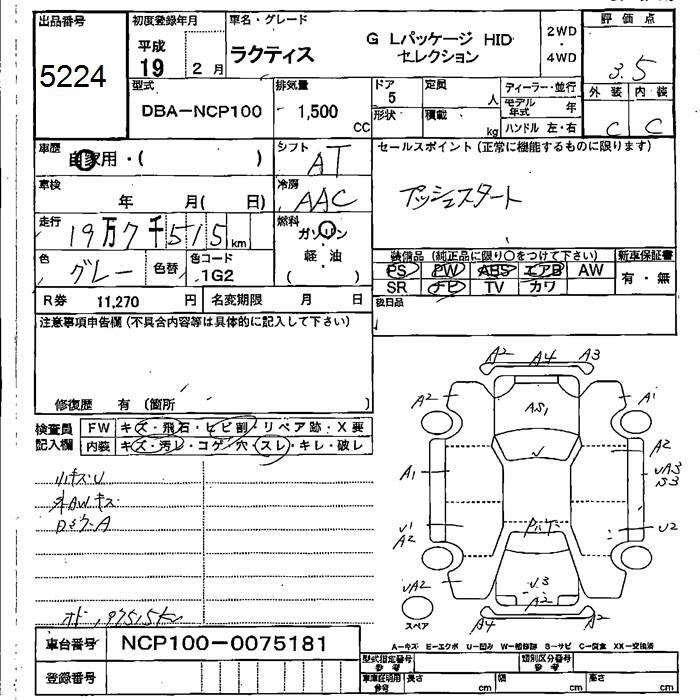 出品番号 初度登録年月 車名・グレード 2WD・4WD 評価点
5224 平成19 2月 ラクティス G Lパッケージ HID セレクション 3.5
型式 排気量 ドア 定員 ディーラー・並行 外装 内装
DBA-NCP100 1,500 CC 5 人 モデル年式 年 C C
形状 積載 kg ハンドル 左・右
車歴 自家用・( ) シフト AT セールスポイント (正常に機能するものに限ります)
車検 年 月( 日) 冷房 AAC プッシュスタート
走行 19万7千515km 燃料 ガソリン
色 グレー 色替 色コード 1G2 ( 軽・油 )
装備品 (純正品に限り○をつけて下さい) 新車保証書
PS PW ABS エアB AW 有・無
SR ナビ TV カワ
R券 11,270 円 名変期限 月 日 後日品
注意事項申告欄 (不具合内容等は具体的に記入して下さい)
修復歴 有 (箇所 )
検査員記入欄 FW キズ・飛石・ヒビ割・リペア跡・X要
内装 キズ・汚レ・コゲ・穴・スレ・キレ・破レ
小キズ・U
AWキズ
A2 A4 A3
A2 AS1 A1
U
A1 A2
UA3
S3
U1
A2
U2
UA2 U3
A2
A4 A2
スペア
車台番号 NCP100-0075181
A-キズ E-エクボ U-凹ミ W-補修跡 S-サビ C-腐食 XX-交換済
登録番号 型式指定番号 参考 類別区分番号 参考
車庫証明用 参考 長さ cm 幅 cm 高さ cm